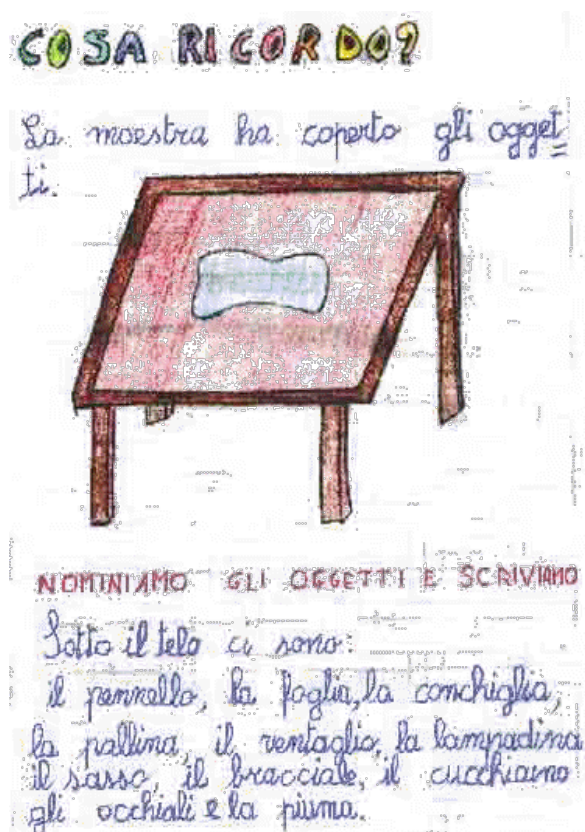 COSA RICORDO?
La maestra ha coperto gli ogget
ti.
NOMINIAMO GLI OGGETTI E SCRIVIAMO
Sotto il telo ci sono:
il pennello, la foglia, la conchiglia,
la pallina, il ventaglio, la lampadina
il sasso, il bracciale, il cucchiaino
gli occhiali e la piuma.